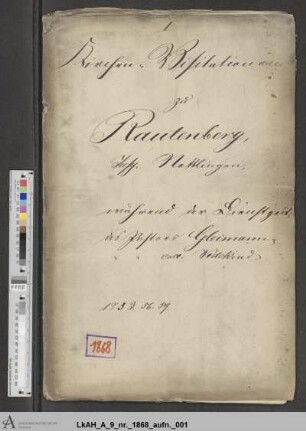 Kirchen-Visitationen
zu
Rautenberg,
Insp. Nettlingen,
während der Dienstzeit
des Pastors Gleimann
1868
LkAH_A_9_nr._1868_aufn._001